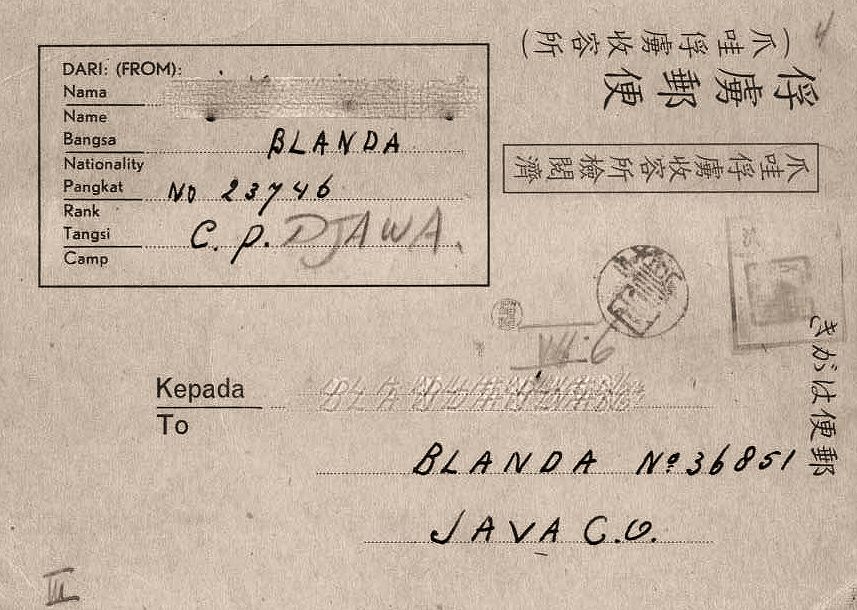 DARI: (FROM):
Nama
Name
Bangsa BLANDA
Nationality
Pangkat No 23746
Rank
Tangsi C. P. DJAWA.
Camp
(爪哇俘虜收容所)
俘虜郵便
爪哇俘虜收容所檢閲濟
4
VII:6
郵便はがき
Kepada
To
BLANDA No 36851
JAVA C.O.
III